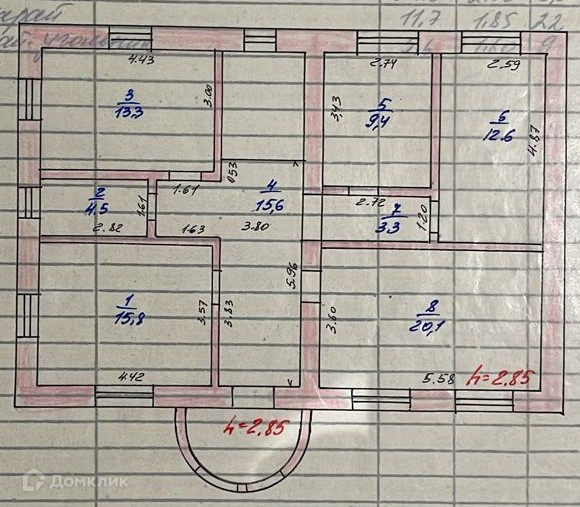 сарай
11,7 1.85 22
4.43
2.74
2.59
3
13.3
3.00
3,43
5
9,4
6
12.6
4.87
0,53
2
4.5
1.61
1.61
4
15,6
2.72
7
3.3
1.20
2.82
1.63
3.80
1
15,8
3.57
3.83
5.96
3.60
8
20,1
4.42
5.58
h=2.85
h=2.85
Домклик